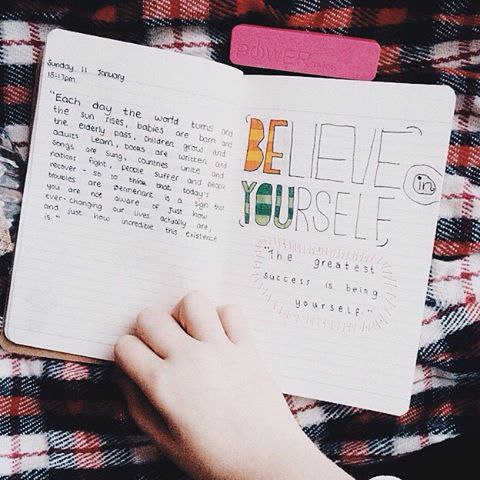 Sunday 11 January
18:17pm
"Each day the world turns and
the sun rises, babies are born and
the elderly pass. Children grow and
adults Learn, books are written and
songs are sung, countries unite and
nations fight, people suffer and people
recover - so to think that today's
troubles are permenant is a sign that
you are not aware of just how
ever-changing our lives actually are,
and just how incredible this existence
is. "
POWER
BELIEVE
in
YOURSELF
"The greatest
success is being
yourself."